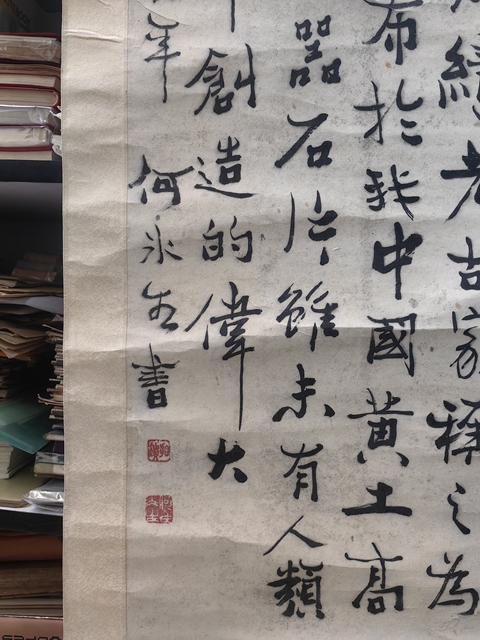 老古家释之為
布於我中國黃土高
器石片雖未有人類
創造的偉大
年 何永生書